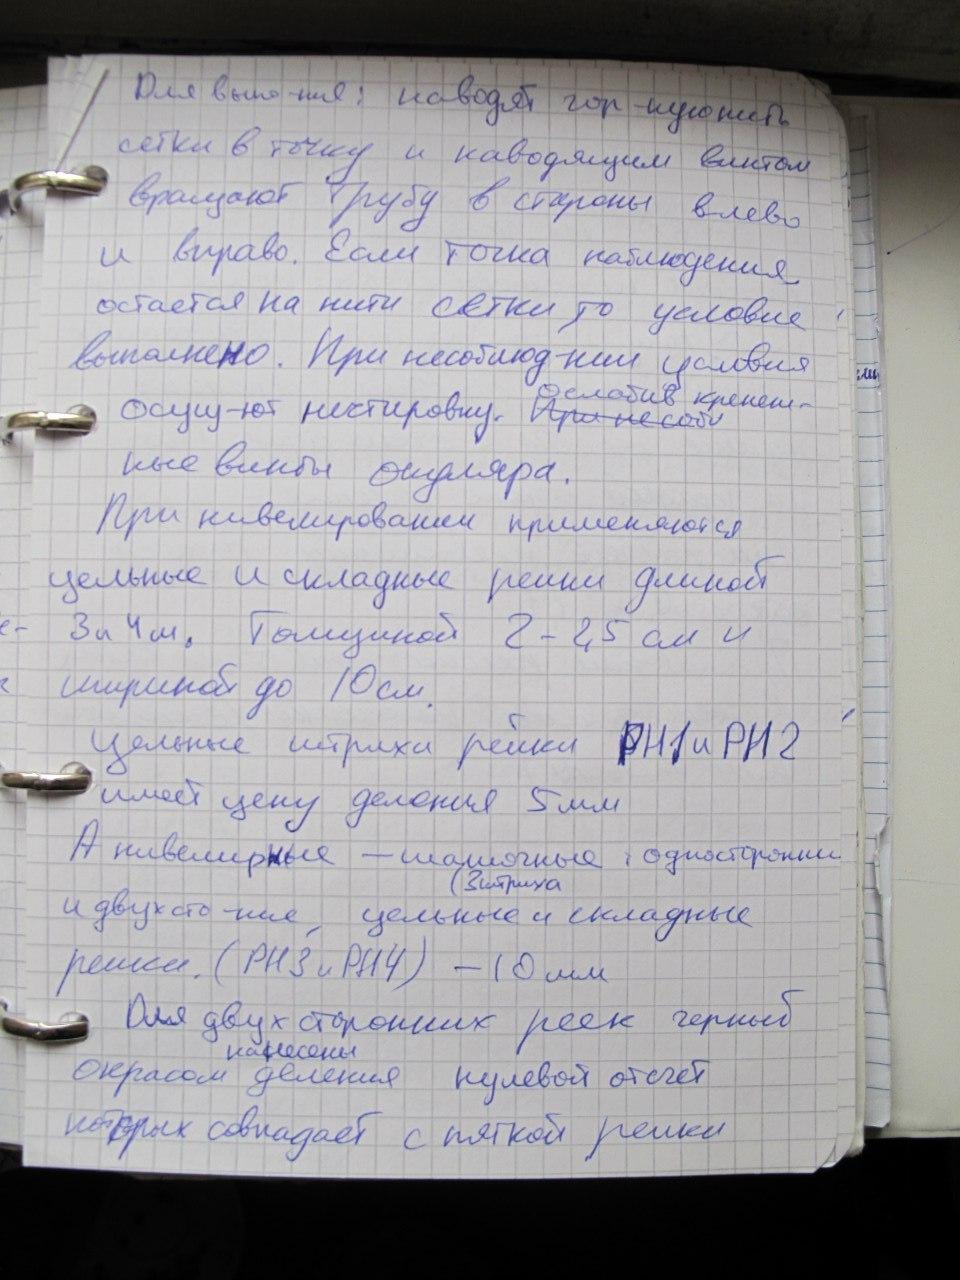 Для выпо-ния: наводят гор-ную нить
сетки в точку и наводящим винтом
вращают трубу в стороны влево
и вправо. Если точка наблюдения
остается на нити сетки то условие
выполнено. При несоблюд-нии условия
осущ-ют юстировку. ослабив крепеж-
При несобл
ные винты окуляра.
При нивелировании применяются
цельные и складные рейки длиной
3 и 4 м. Толщиной 2-2,5 см и
шириной до 10 см.
Цельные штрихи рейки РН1 и РН2
имеет цену деления 5 мм
А нивелирные - шашечные: односторонни
(3 штриха
и двухсто-ние, цельные и складные
рейки. (РН3 и РН4) - 10 мм
Для двухсторонних реек черный
нанесены
окрасом деления нулевой отсчет
которых совпадает с пяткой рейки